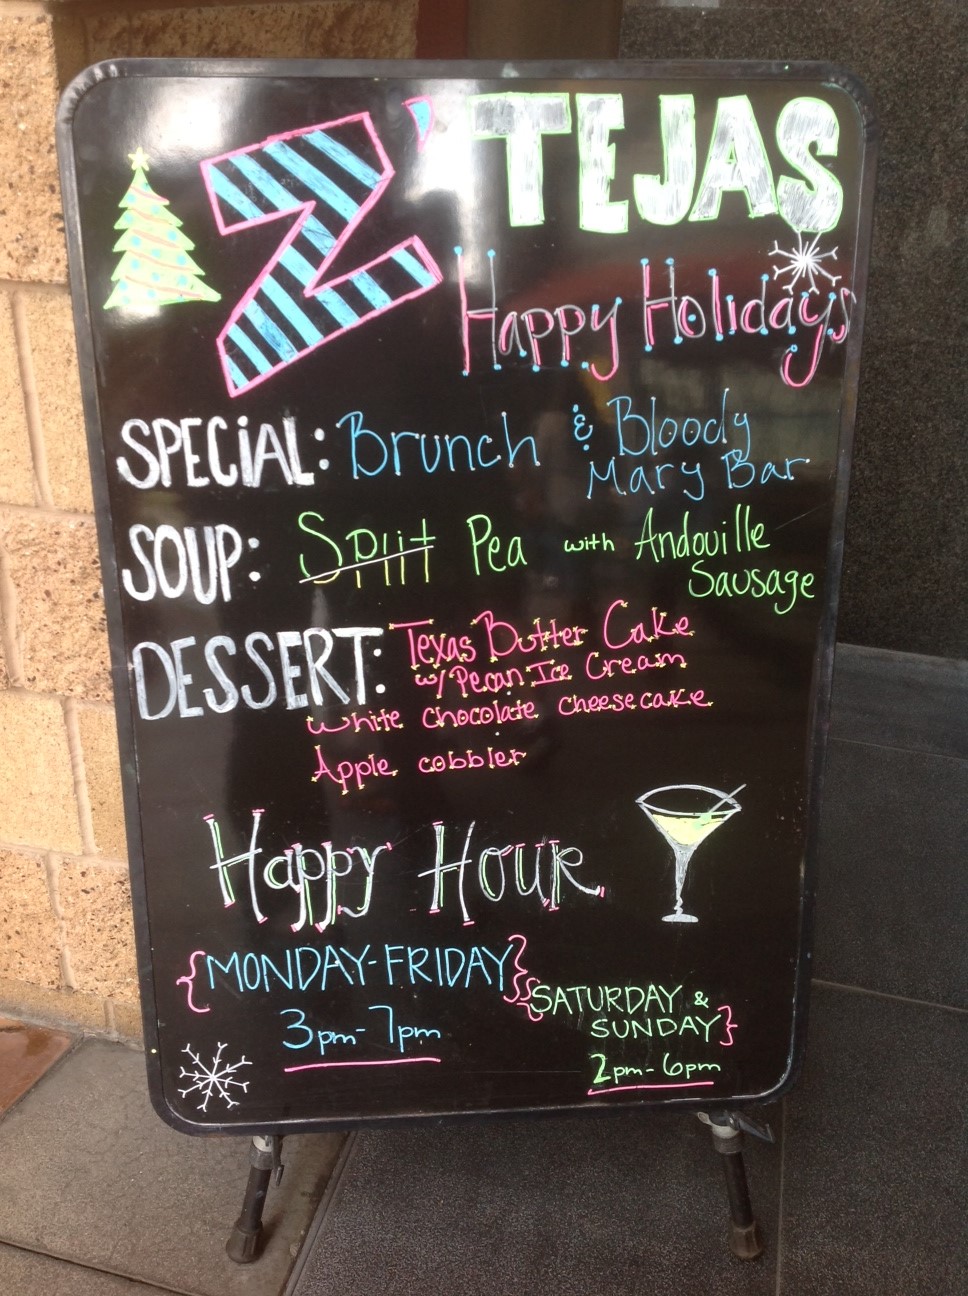 Z'TEJAS
Happy Holidays
SPECIAL: Brunch & Bloody
Mary Bar
SOUP: Split Pea with Andouille
Sausage
DESSERT: Texas Butter Cake
w/ Pecan Ice Cream
White chocolate cheesecake
Apple cobbler
Happy Hour
{MONDAY-FRIDAY}
3pm-7pm
{SATURDAY &
SUNDAY}
2pm-6pm